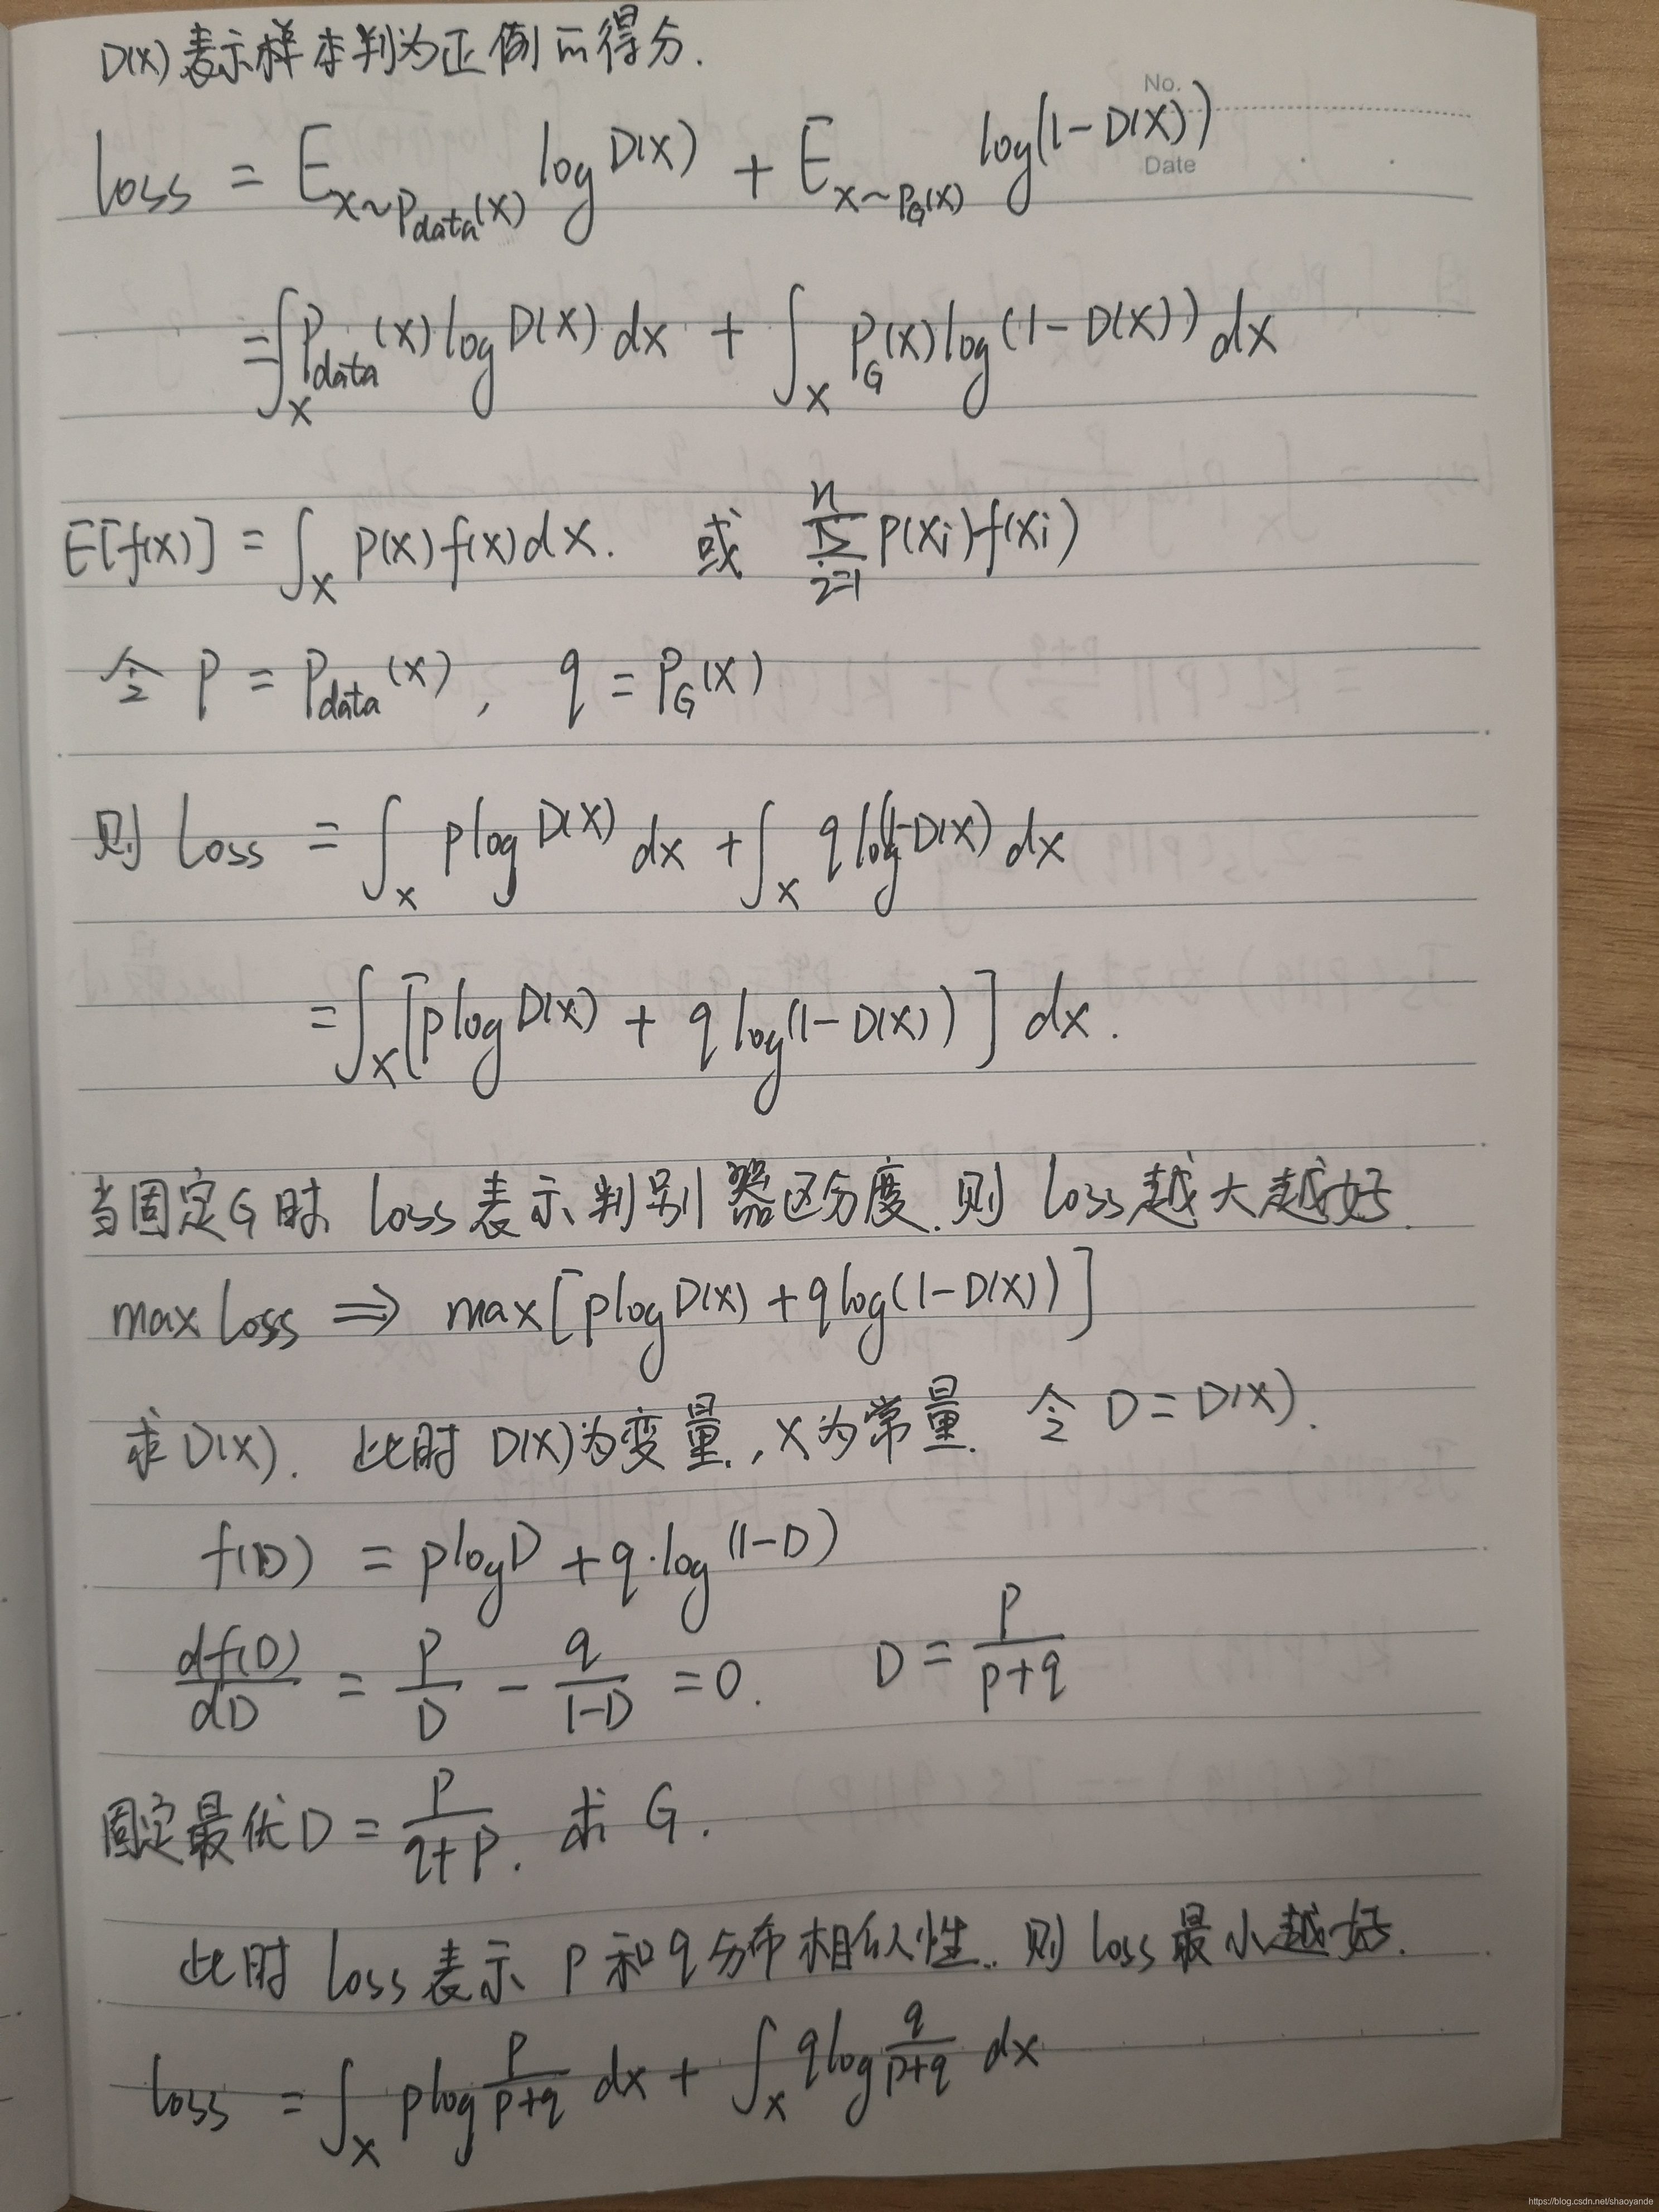 D(x)表示样本判为正例的得分.
No.
Date
loss = E_{x~P_{data}(x)} log D(x) + E_{x~P_G(x)} log(1-D(x))
= ∫_x P_{data}(x) log D(x) dx + ∫_x P_G(x) log(1-D(x)) dx
E[f(x)] = ∫_x p(x)f(x)dx. 或 \sum_{i=1}^{n} P(xi)f(xi)
令 P = P_{data}(x), q = P_G(x)
则 Loss = ∫_x p log D(x) dx + ∫_x q log(1-D(x) dx
= ∫_x [p log D(x) + q log(1-D(x))] dx.
当固定G时 loss表示判别器区分度.则 loss越大越好.
max loss ⇒ max[p log D(x) + q log(1-D(x))]
求D(x). 此时 D(x)为变量, x为常量. 令 D = D(x).
f(D) = p log D + q·log(1-D)
\frac{df(D)}{dD} = \frac{P}{D} - \frac{q}{1-D} = 0. D = \frac{P}{p+q}
固定最优D = \frac{P}{q+P}. 求 G.
此时 loss表示 P和q分布相似性.. 则 loss最小越好.
loss = ∫_x p log \frac{P}{p+q} dx + ∫_x q log \frac{q}{p+q} dx
https://blog.csdn.net/shaoyande